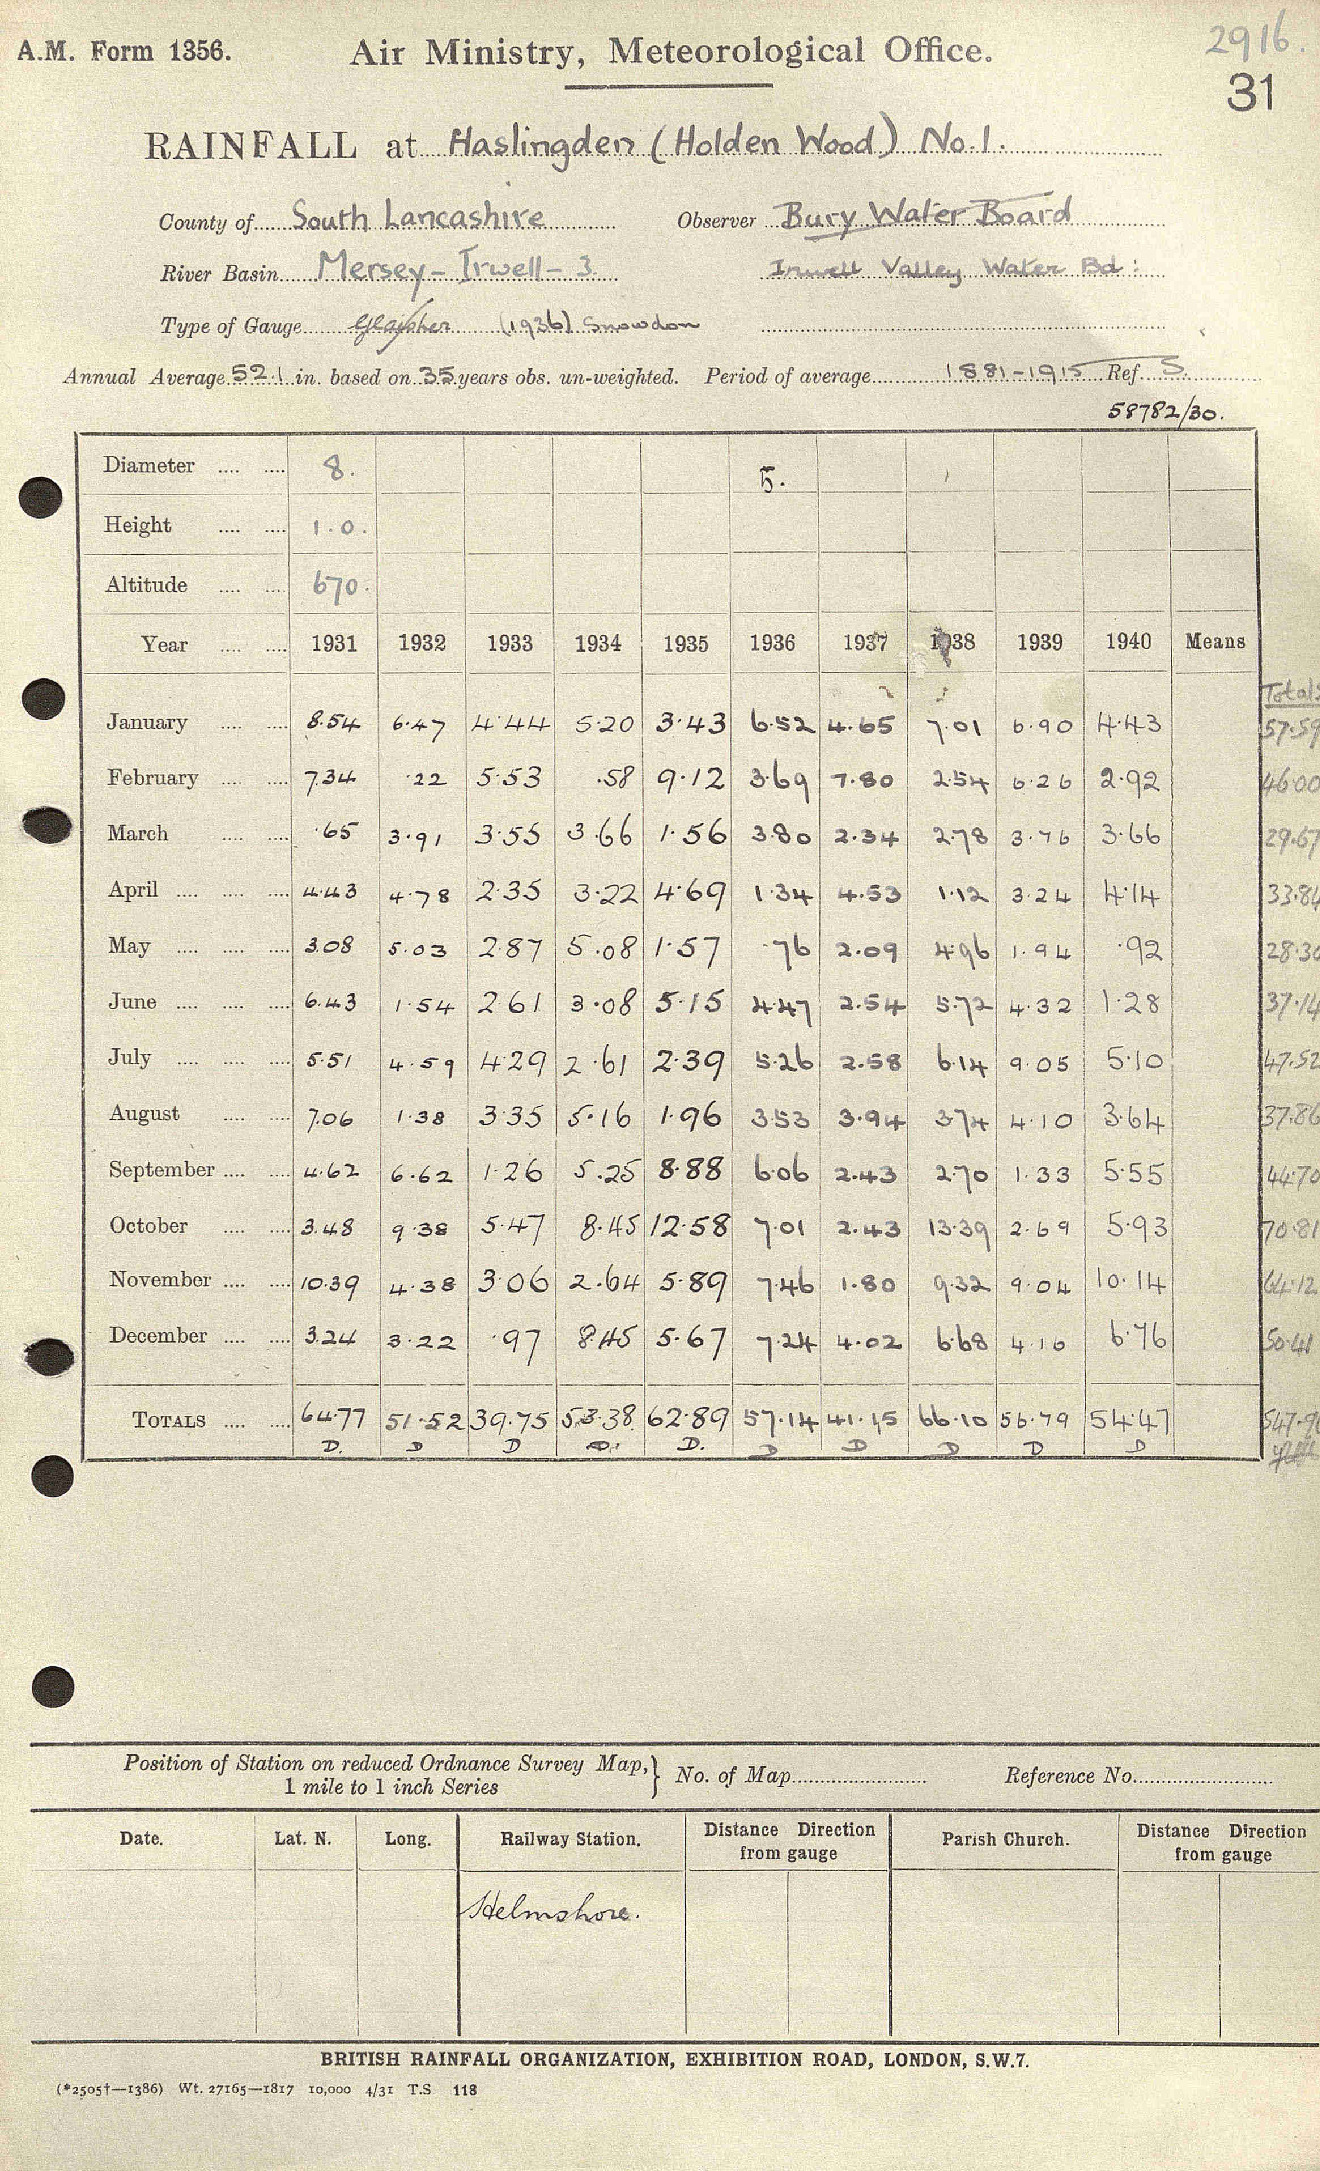 2916.
A.M. Form 1356. Air Ministry, Meteorological Office.
31
RAINFALL at Haslingden (Holden Wood) No. 1.
County of South Lancashire Observer Bury Water Board
River Basin Mersey - Irwell - 3 Irwell Valley Water Bd:
Type of Gauge Glaisher (1936) Snowdon
Annual Average 52.1 in. based on 35 years obs. un-weighted. Period of average 1881-1915 Ref. S.
58782/30.
Diameter 8. 5.
Height 1.0.
Altitude 670.
Year 1931 1932 1933 1934 1935 1936 1937 1938 1939 1940 Means
Totals
January 8.54 6.47 4.44 5.20 3.43 6.52 4.65 7.01 6.90 4.43 57.59
February 7.34 .22 5.53 .58 9.12 3.69 7.80 2.54 6.26 2.92 46.00
March .65 3.91 3.55 3.66 1.56 3.80 2.34 2.78 3.76 3.66 29.67
April 4.43 4.78 2.35 3.22 4.69 1.34 4.53 1.12 3.24 4.14 33.84
May 3.08 5.03 2.87 5.08 1.57 .76 2.09 4.96 1.94 .92 28.30
June 6.43 1.54 2.61 3.08 5.15 4.47 2.54 5.72 4.32 1.28 37.14
July 5.51 4.59 4.29 2.61 2.39 5.26 2.58 6.14 9.05 5.10 47.52
August 7.06 1.38 3.35 5.16 1.96 3.53 3.94 3.74 4.10 3.64 37.86
September 4.62 6.62 1.26 5.25 8.88 6.06 2.43 2.70 1.33 5.55 44.70
October 3.48 9.38 5.47 8.45 12.58 7.01 2.43 13.39 2.69 5.93 70.81
November 10.39 4.38 3.06 2.64 5.89 7.46 1.80 9.32 9.04 10.14 64.12
December 3.24 3.22 .97 8.45 5.67 7.24 4.02 6.68 4.16 6.76 50.41
TOTALS 64.77 51.52 39.75 53.38 62.89 57.14 41.15 66.10 56.79 54.47 547.96
D. D D D. D. D D D D D
Position of Station on reduced Ordnance Survey Map, } No. of Map Reference No.
1 mile to 1 inch Series
Date. Lat. N. Long. Railway Station. Distance Direction from gauge Parish Church. Distance Direction from gauge
Helmshore.
BRITISH RAINFALL ORGANIZATION, EXHIBITION ROAD, LONDON, S.W.7.
(*2505†—1386) Wt. 27165—1817 10,000 4/31 T.S 118